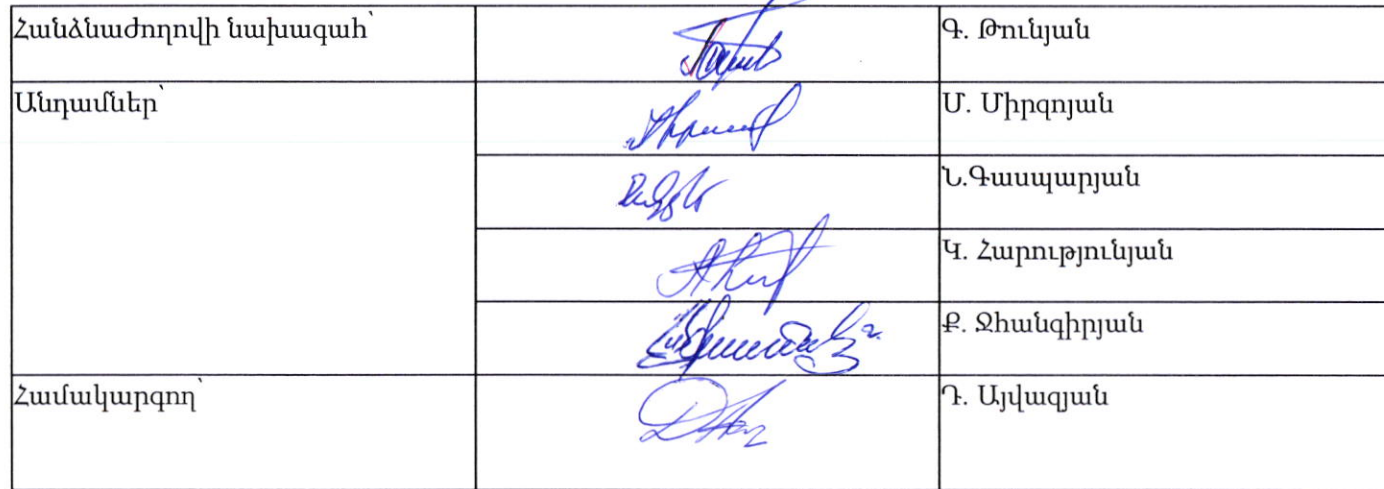 Հանձնաժողովի նախագահ՝
Գ. Թունյան
Անդամներ՝
Մ. Միրզոյան
Ն.Գասպարյան
Կ. Հարությունյան
Ք. Ջհանգիրյան
Համակարգող՝
Դ. Այվազյան